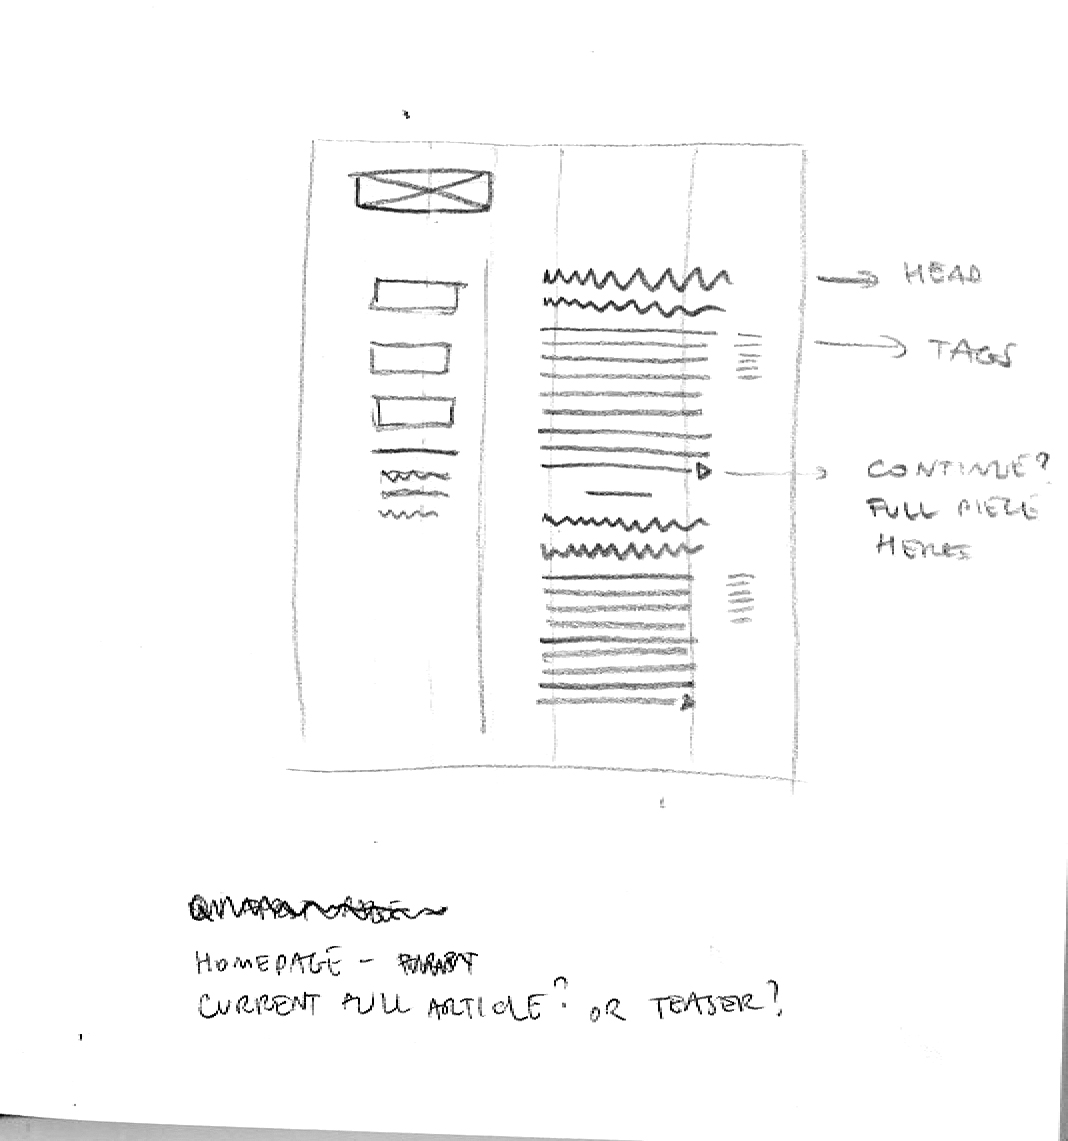 HEAD
TAGS
CONTINUE?
FULL PIECE
HERE
HOMEPAGE -
CURRENT FULL ARTICLE? OR TEASER?